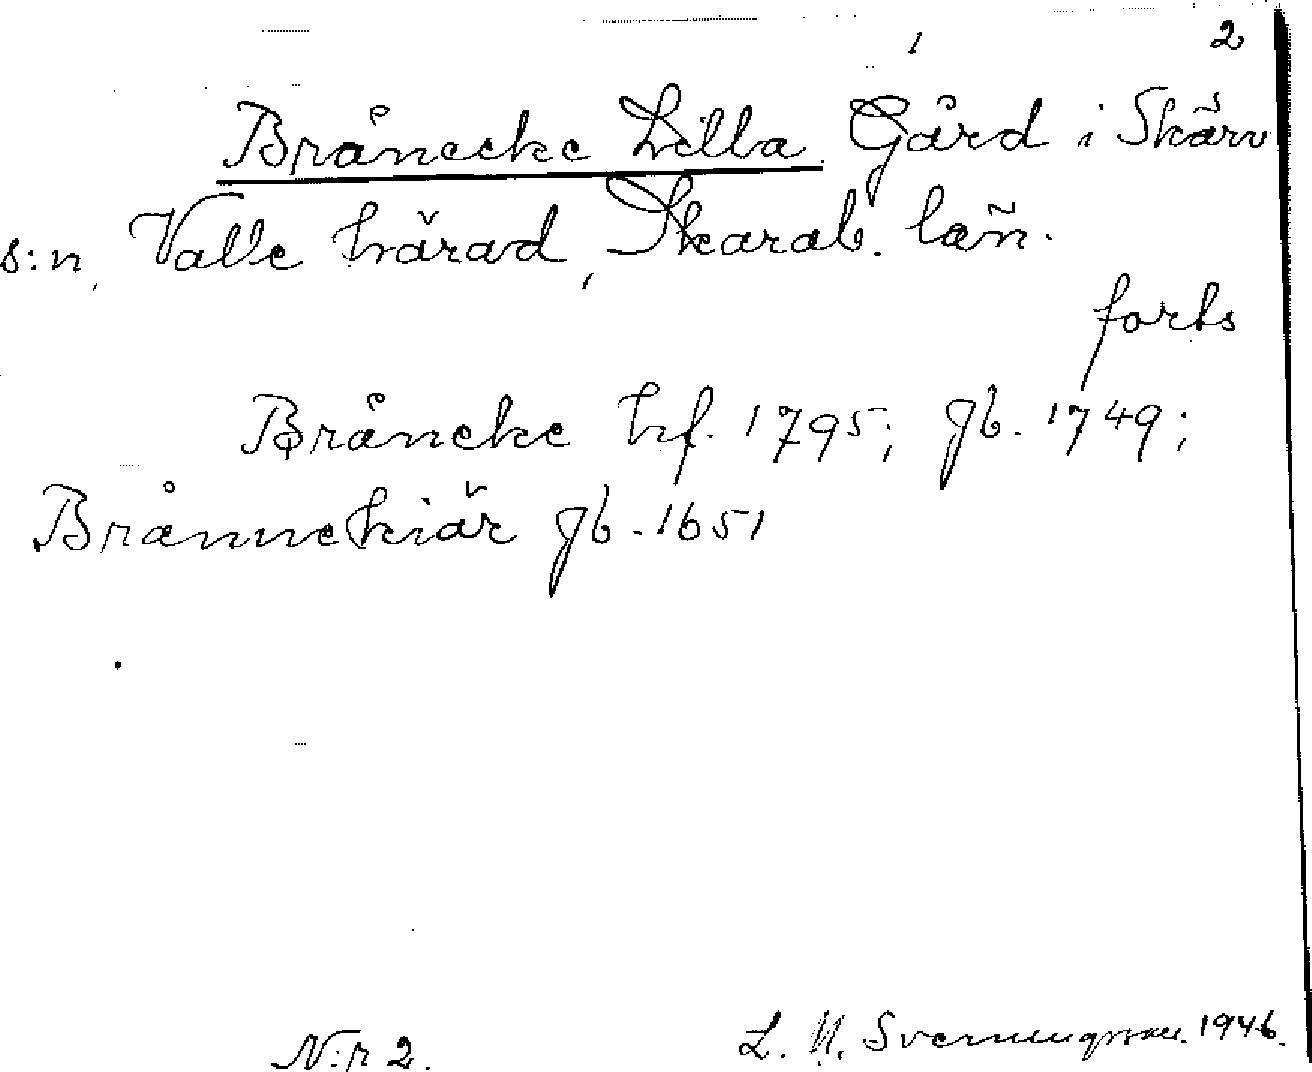 2
Brånecke Lilla. Gård i Skärv
s:n, Valle härad, Skarab. län.
forts
Bråneke hf. 1795; Jb. 1749;
Brånnekiär Jb. 1651
N:r 2.
L. N. Svenningsson. 1946.